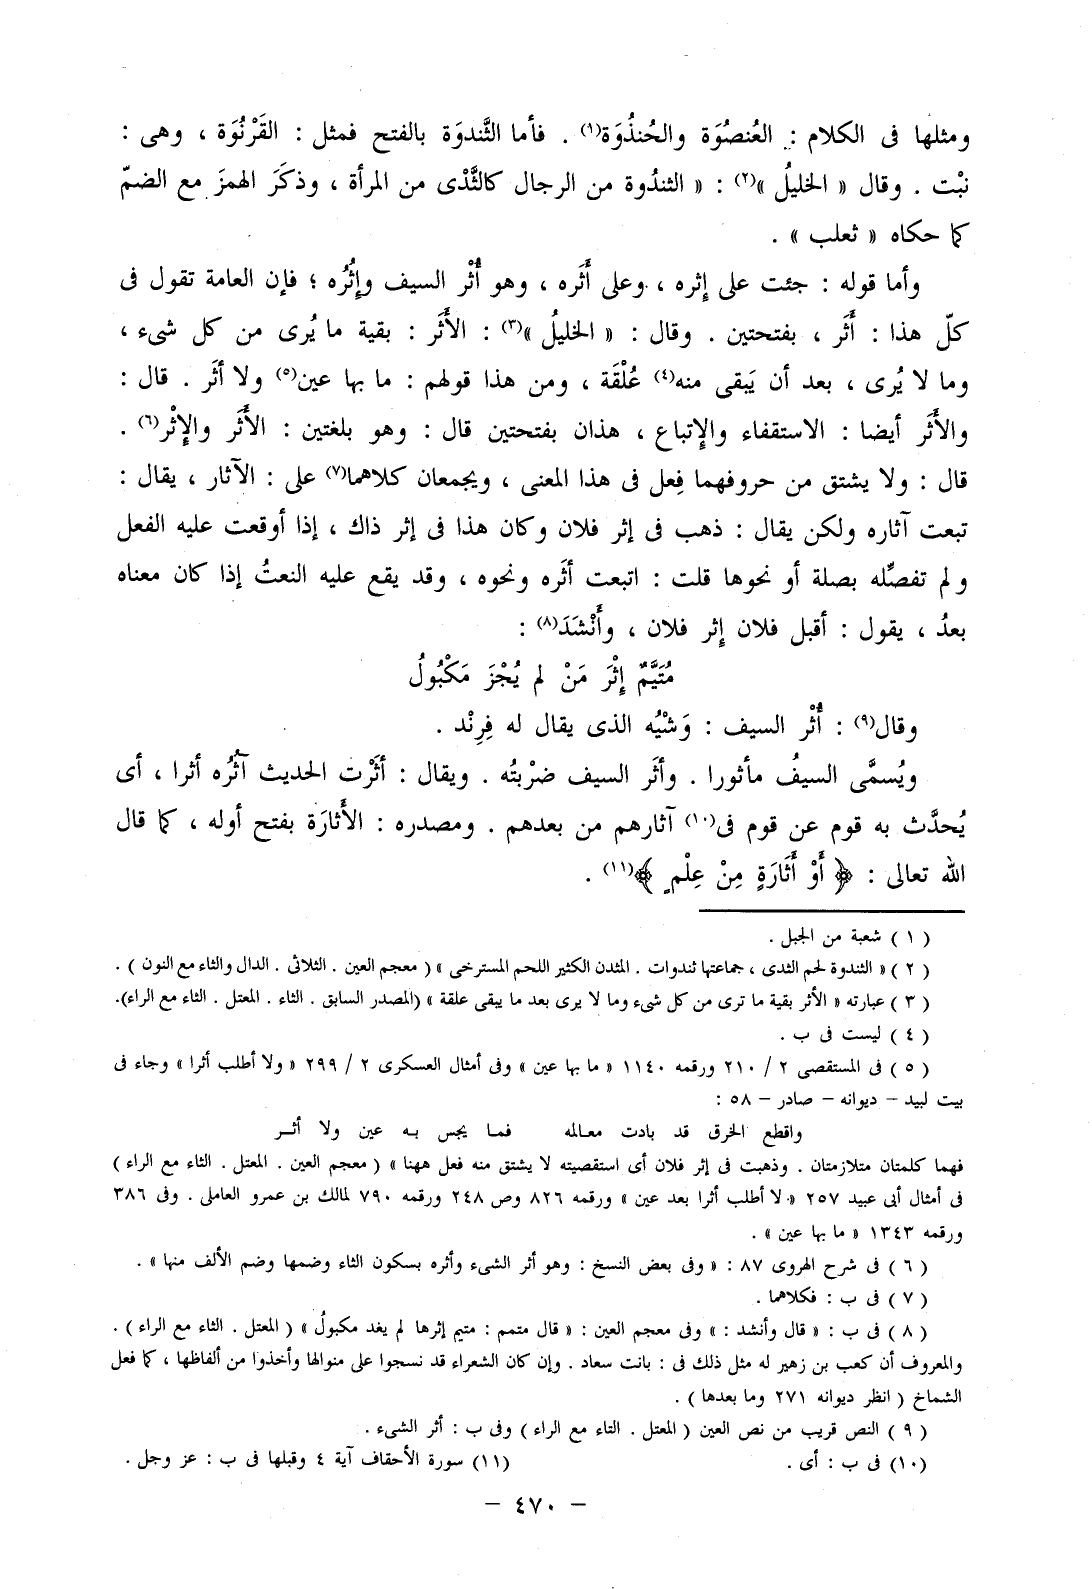 ومثلها فى الكلام : العُنصُوَة والحُنذُوَة(١) . فأما الثَّندوَة بالفتح فمثل : القَرْنُوَة ، وهى :
نبْت . وقال « الخليلُ »(٢) : « الثندُوة من الرجال كالثَّدْى من المرأة ، وذكرَ الهمزَ مع الضمّ
كما حكاه « ثعلب » .
وأما قوله : جئت على إثره ، وعلى أَثَره ، وهو أُثْر السيف وإثُرُه ؛ فإن العامة تقول فى
كلّ هذا : أَثَر ، بفتحتين . وقال : « الخليلُ »(٣) : الأَثَر : بقية ما يُرى من كل شىء ،
وما لا يُرى ، بعد أن يَبقى منه(٤) عُلْقَة ، ومن هذا قولهم : ما بها عين(٥) ولا أثَر . قال :
والأَثَر أيضا : الاستقفاء والإتباع ، هذان بفتحتين قال : وهو بلغتين : الأَثَر والإثْر(٦) .
قال : ولا يشتق من حروفهما فِعل فى هذا المعنى ، ويجمعان كلاهما(٧) على : الآثار ، يقال :
تبعت آثاره ولكن يقال : ذهب فى إثر فلان وكان هذا فى إثر ذاك ، إذا أوقعت عليه الفعل
ولم تفصِّله بصلة أو نحوها قلت : اتبعت أثَره ونحوه ، وقد يقع عليه النعتُ إذا كان معناه
بعدُ ، يقول : أقبل فلان إثر فلان ، وأَنْشَدَ(٨) :
مُتَيَّمٌ إثْرَ مَنْ لم يُجْزَ مَكْبُولُ
وقال(٩) : أُثْر السيف : وَشْيُه الذى يقال له فِرِنْد .
ويُسمَّى السيفُ مأثورا . وأثَر السيف ضرْبتُه . ويقال : أثَرْت الحديث آثُرُه أثرا ، أى
يُحدَّث به قوم عن قوم فى(١٠) آثارهم من بعدهم . ومصدره : الأَثارَة بفتح أوله ، كما قال
الله تعالى : ﴿ أَوْ أَثَارَةٍ مِنْ عِلْمٍ ﴾(١١) .
( ١ ) شعبة من الجبل .
( ٢ ) « الثندوة لحم الثدى ، جماعتها ثندوات . المثدن الكثير اللحم المسترخى » ( معجم العين . الثلاثى . الدال والثاء مع النون ) .
( ٣ ) عبارته « الأثر بقية ما ترى من كل شىء وما لا يرى بعد ما يبقى علقة » (المصدر السابق . الثاء . المعتل . الثاء مع الراء).
( ٤ ) ليست فى ب .
( ٥ ) فى المستقصى ٢ / ٢١٠ ورقمه ١١٤٠ « ما بها عين » وفى أمثال العسكرى ٢ / ٢٩٩ « ولا أطلب أثرا » وجاء فى
بيت لبيد – ديوانه – صادر – ٥٨ :
واقطع الخرق قد بادت معالمه    فما يجس به عين ولا أثر
فهما كلمتان متلازمتان . وذهبت فى إثر فلان أى استقصيته لا يشتق منه فعل ههنا » ( معجم العين . المعتل . الثاء مع الراء )
فى أمثال أبى عبيد ٢٥٧ « لا أطلب أثرا بعد عين » ورقمه ٨٢٦ وص ٢٤٨ ورقمه ٧٩٠ لمالك بن عمرو العاملى . وفى ٣٨٦
ورقمه ١٣٤٣ « ما بها عين » .
( ٦ ) فى شرح الهروى ٨٧ : « وفى بعض النسخ : وهو أثر الشىء وأثره بسكون الثاء وضمها وضم الألف منها » .
( ٧ ) فى ب : فكلاهما .
( ٨ ) فى ب : « قال وأنشد : » وفى معجم العين : « قال متمم : متيم إثرها لم يفد مكبولُ » ( المعتل . الثاء مع الراء ) .
والمعروف أن كعب بن زهير له مثل ذلك فى : بانت سعاد . وإن كان الشعراء قد نسجوا على منوالها وأخذوا من ألفاظها ، كما فعل
الشماخ ( انظر ديوانه ٢٧١ وما بعدها ) .
( ٩ ) النص قريب من نص العين ( المعتل . الثاء مع الراء ) وفى ب : أثر الشىء .
(١٠) فى ب : أى .    (١١) سورة الأحقاف آية ٤ وقبلها فى ب : عز وجل .
– ٤٧٠ –